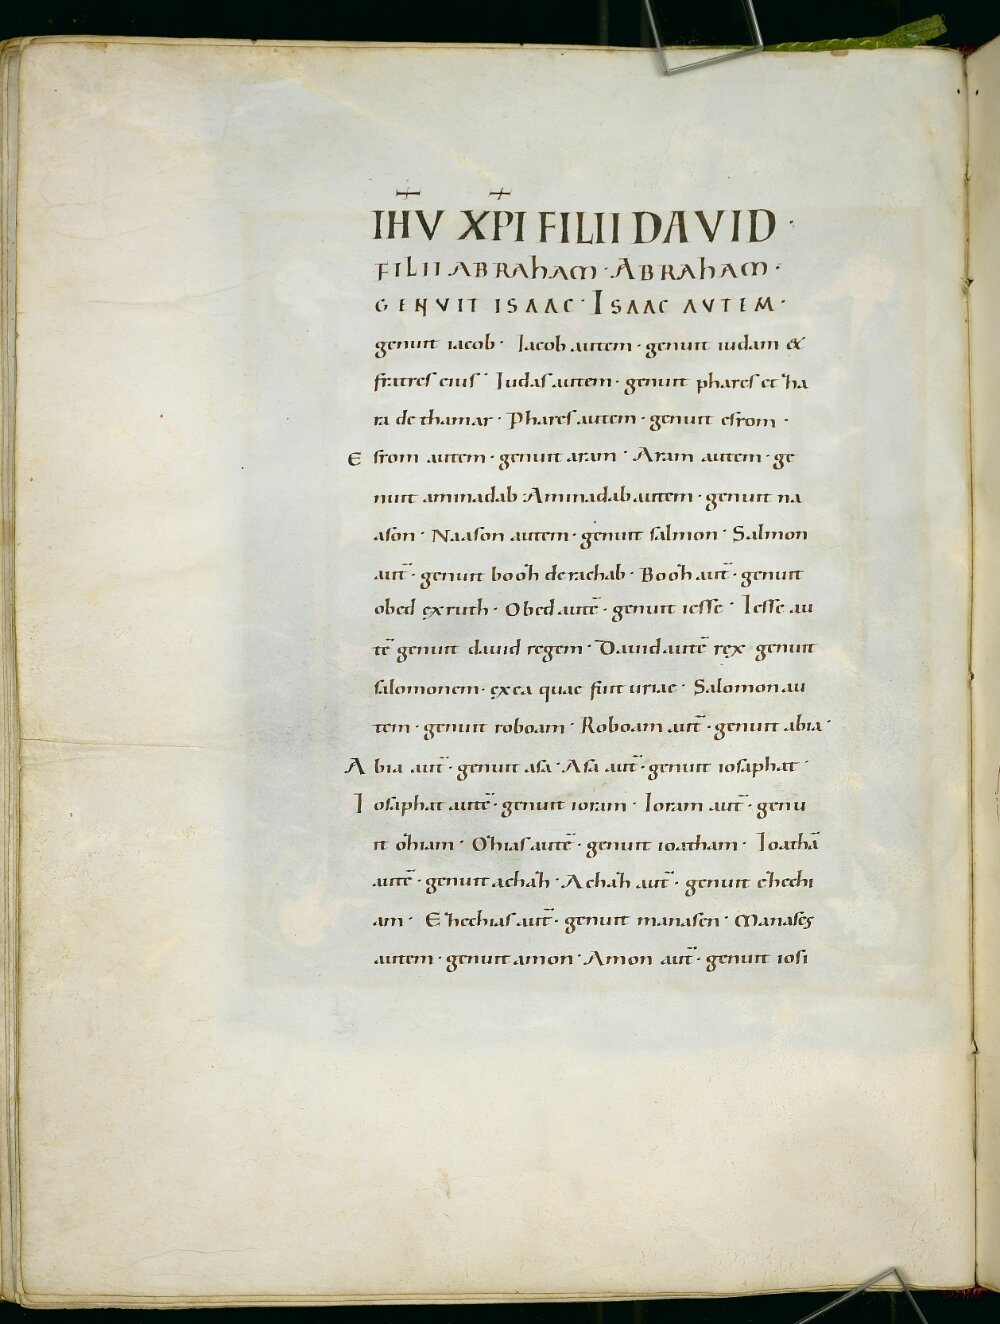 IH̅V XP̅I FILII DAVID ·
FILII ABRAhAM · ABRAhAM ·
GENVIT ISAAC · ISAAC AVTEM ·
genuit iacob · Iacob autem · genuit iudam &
fratres eius · Iudas autem · genuit phares et za
ra de thamar · Phares autem · genuit esrom ·
Esrom autem · genuit aram · Aram autem · ge
nuit aminadab · Aminadab autem · genuit na
ason · Naason autem · genuit salmon · Salmon
aut̅ · genuit booz de rachab · Booz aut̅ · genuit
obed ex ruth · Obed autē · genuit iesse · Iesse au
tē genuit dauid regem · Dauid autē rex genuit
salomonem · ex ea quae fuit uriae · Salomon au
tem · genuit roboam · Roboam aut̅ · genuit abia ·
Abia aut̅ · genuit asa · Asa aut̅ · genuit iosaphat ·
Iosaphat autē · genuit ioram · Ioram aut̅ · genu
it oziam · Ozias autē · genuit ioatham · Ioathā
autē · genuit achaz · Achaz aut̅ · genuit ezechi
am · Ezechias aut̅ · genuit manasen · Manases
autem · genuit amon · Amon aut̅ · genuit iosi